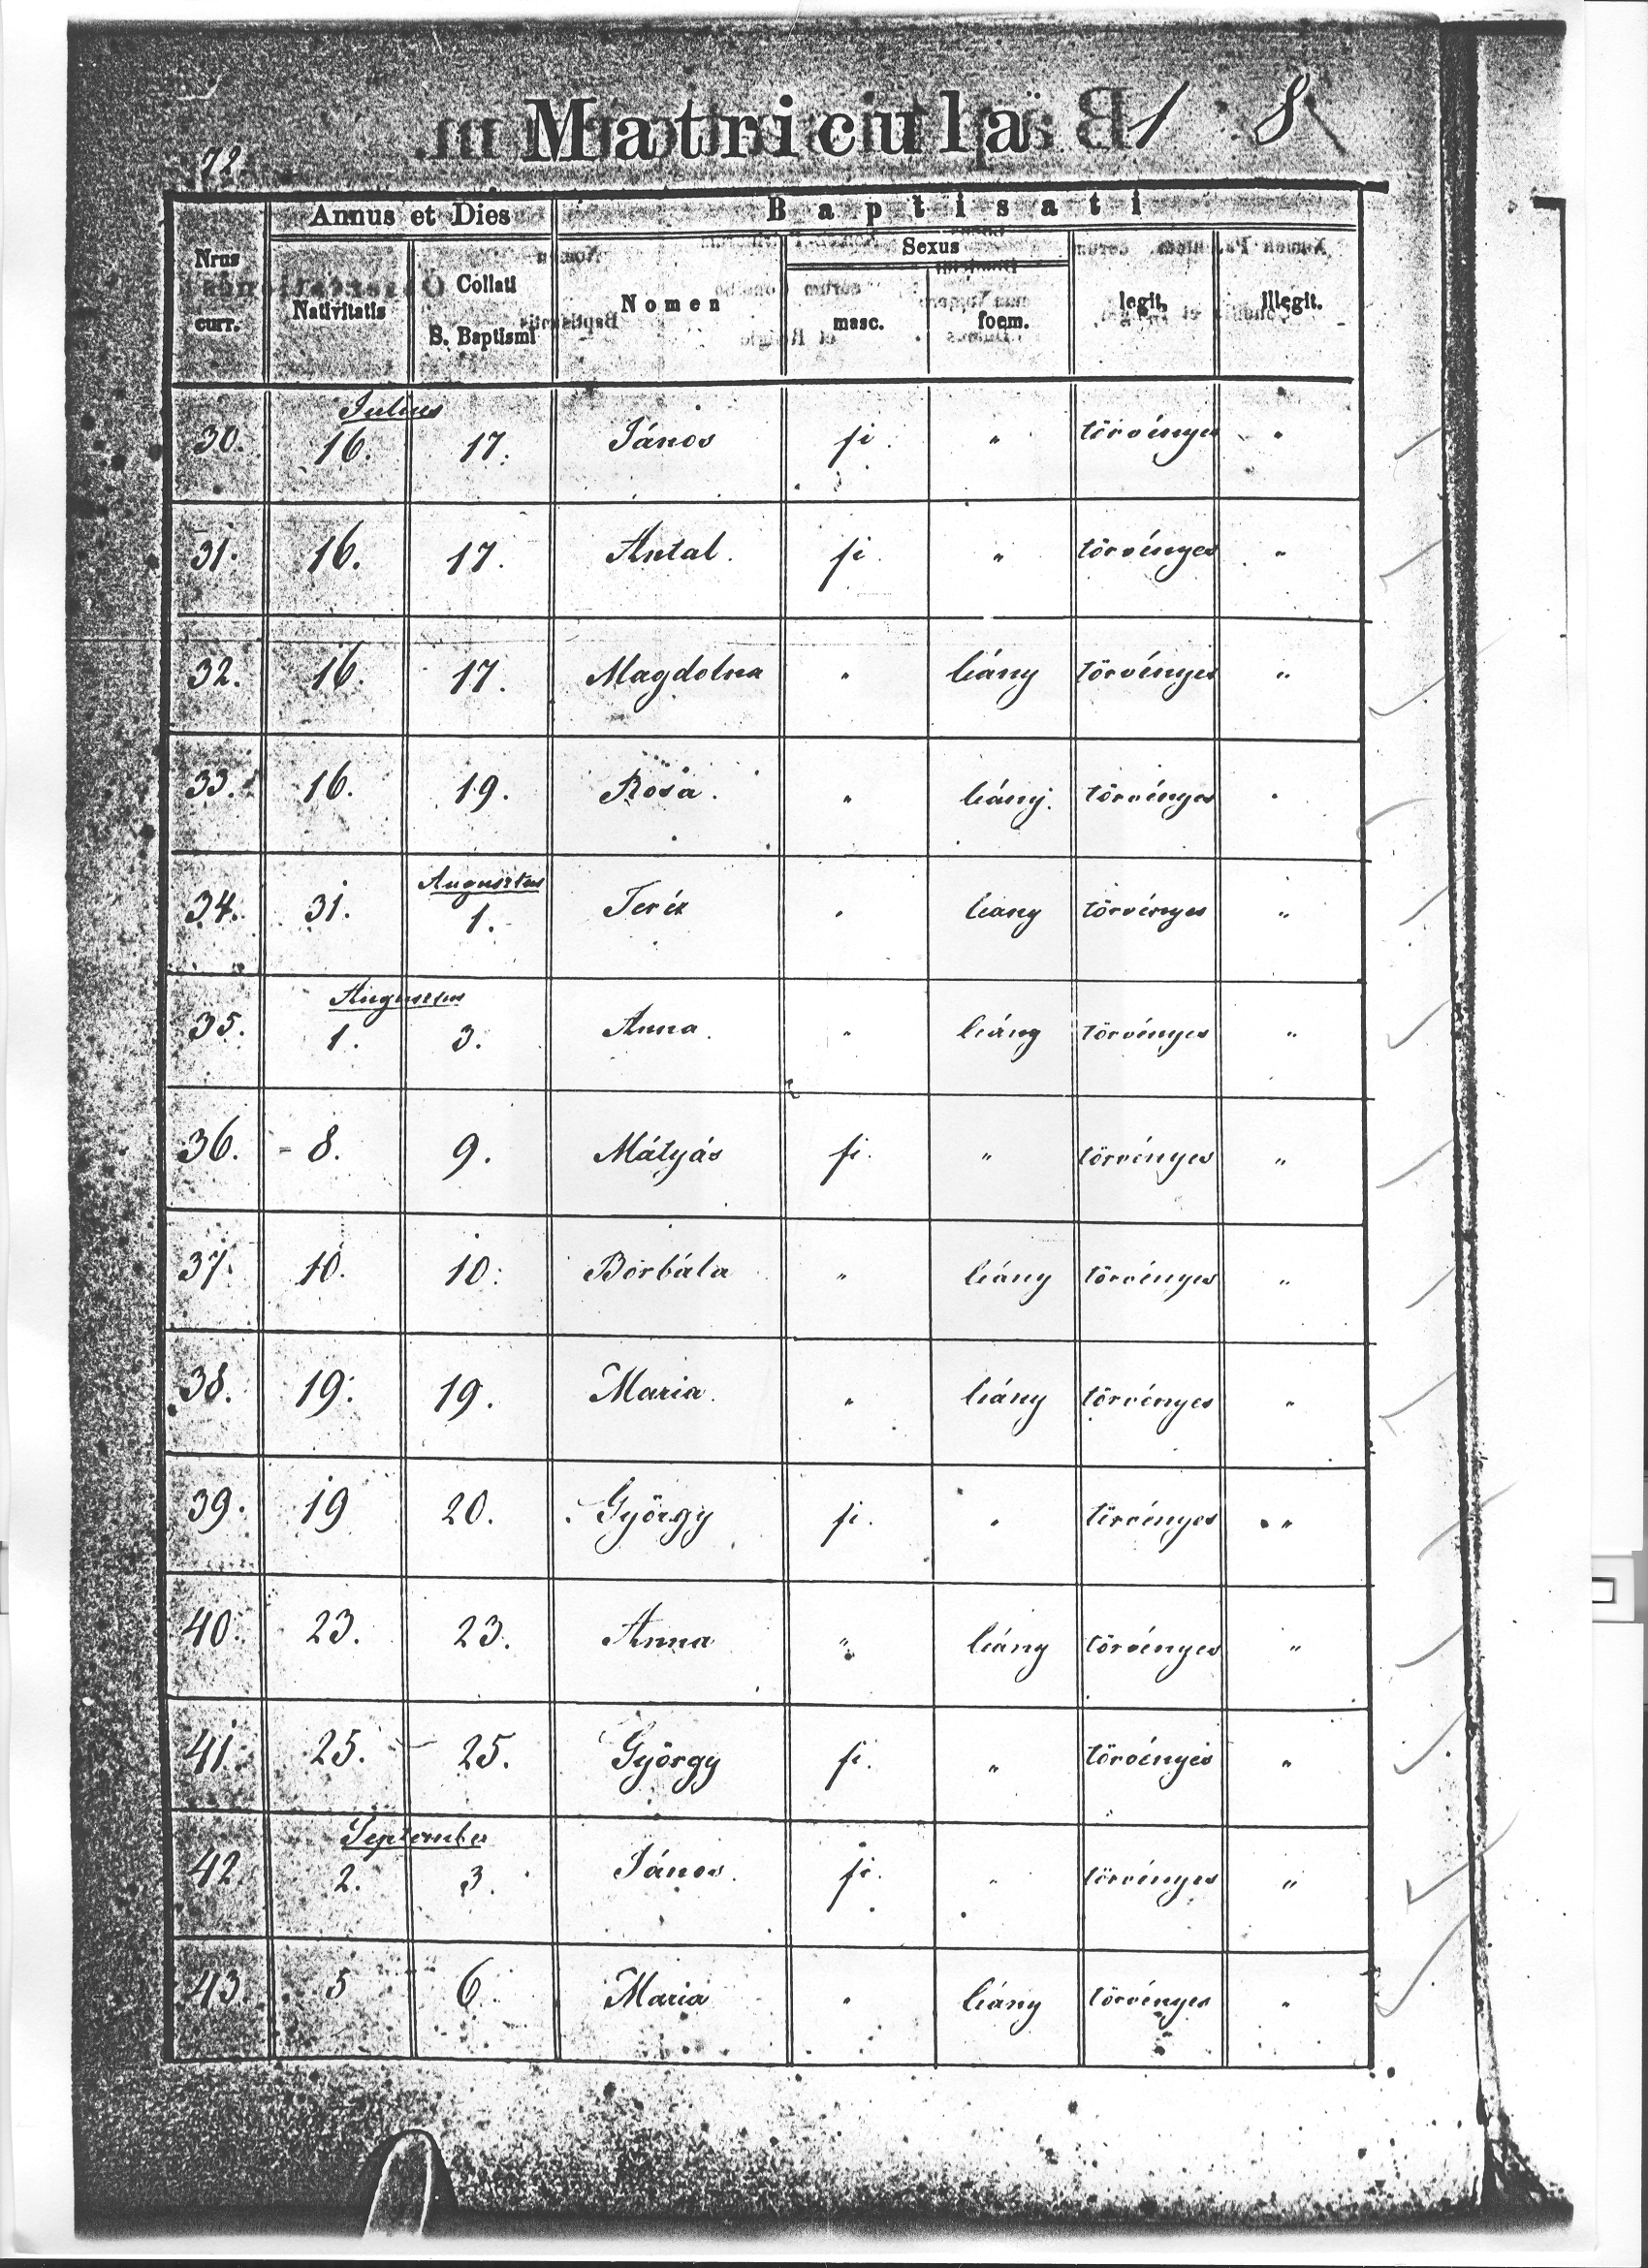 Matricula 1 8
72.
Annus et Dies Baptisati
Nrus curr. Nativitatis Collati S. Baptismi Nomen Sexus masc. foem. legit. illegit.
Julius
30. 16. 17. János fi. „ törvényes „
31. 16. 17. Antal. fi. „ törvényes „
32. 16. 17. Magdolna „ leány törvényes „
33. 16. 19. Rosa. „ leány. törvényes „
Augusztus
34. 31. 1. Teréz „ leany törvényes „
Augusztus
35. 1. 3. Anna. „ leány törvényes „
36. 8. 9. Mátyás fi. „ törvényes „
37. 10. 10. Borbála „ leány törvényes „
38. 19. 19. Maria. „ leány törvényes „
39. 19 20. György fi. „ törvényes „
40. 23. 23. Anna „ leány törvényes „
41. 25. 25. György fi. „ törvényes „
September
42 2. 3. János. fi. „ törvényes „
43 5 6. Maria „ leány törvényes „